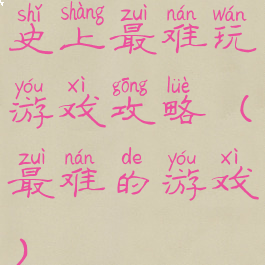 shǐ shàng zuì nán wán
史上最难玩
yóu xì gōng lüè
游戏攻略（
zuì nán de yóu xì
最难的游戏
）